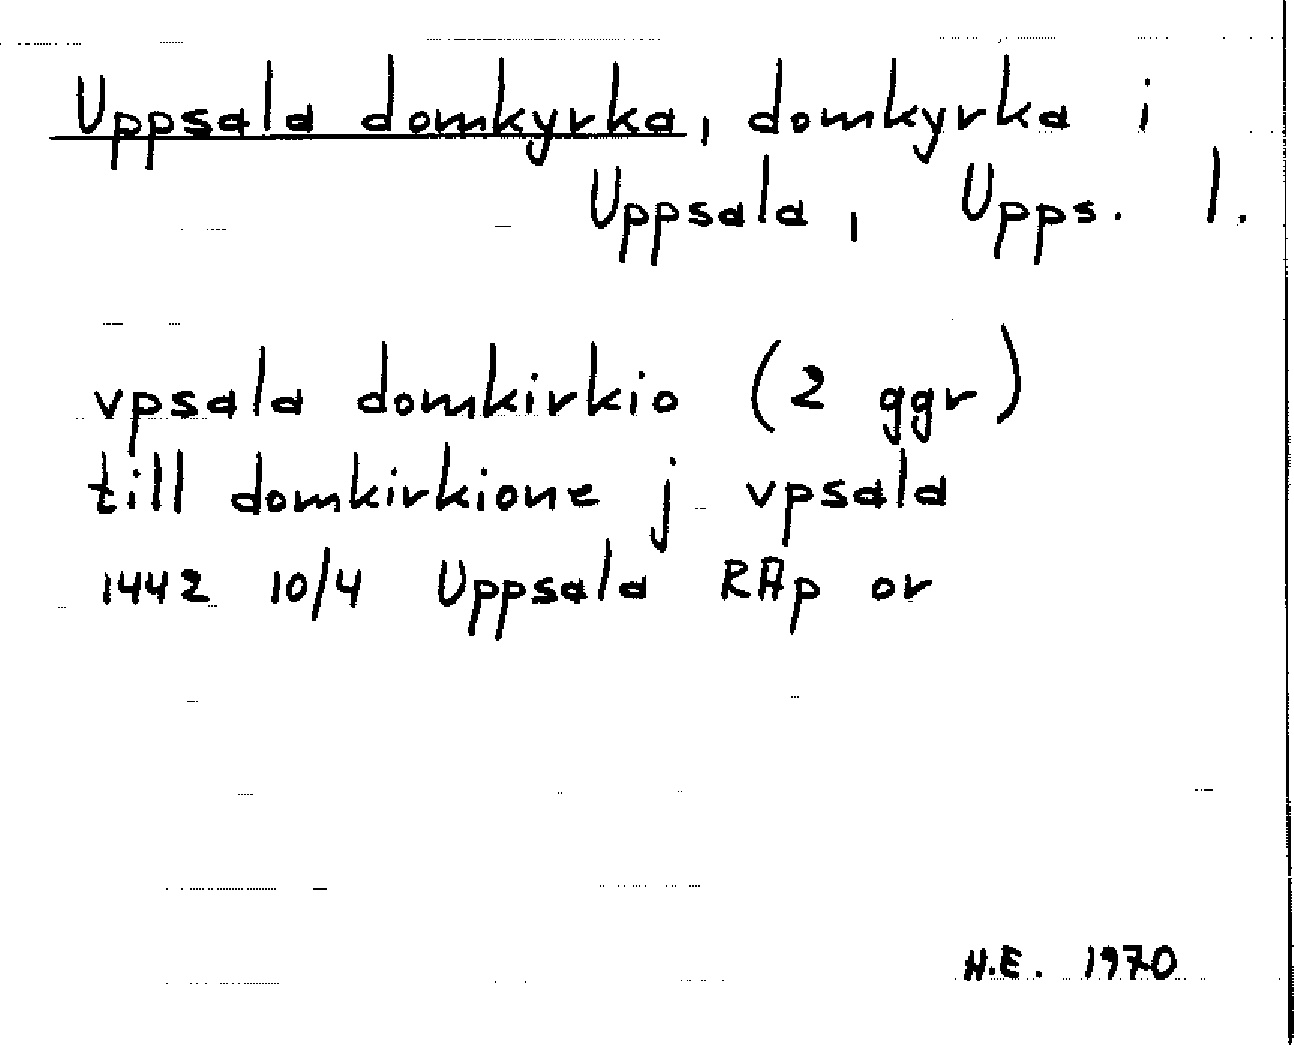 Uppsala domkyrka, domkyrka i
Uppsala, Upps. l.
vpsala domkirkio (2 ggr)
till domkirkione j vpsala
1442 10/4 Uppsala RAp or
H.E. 1970